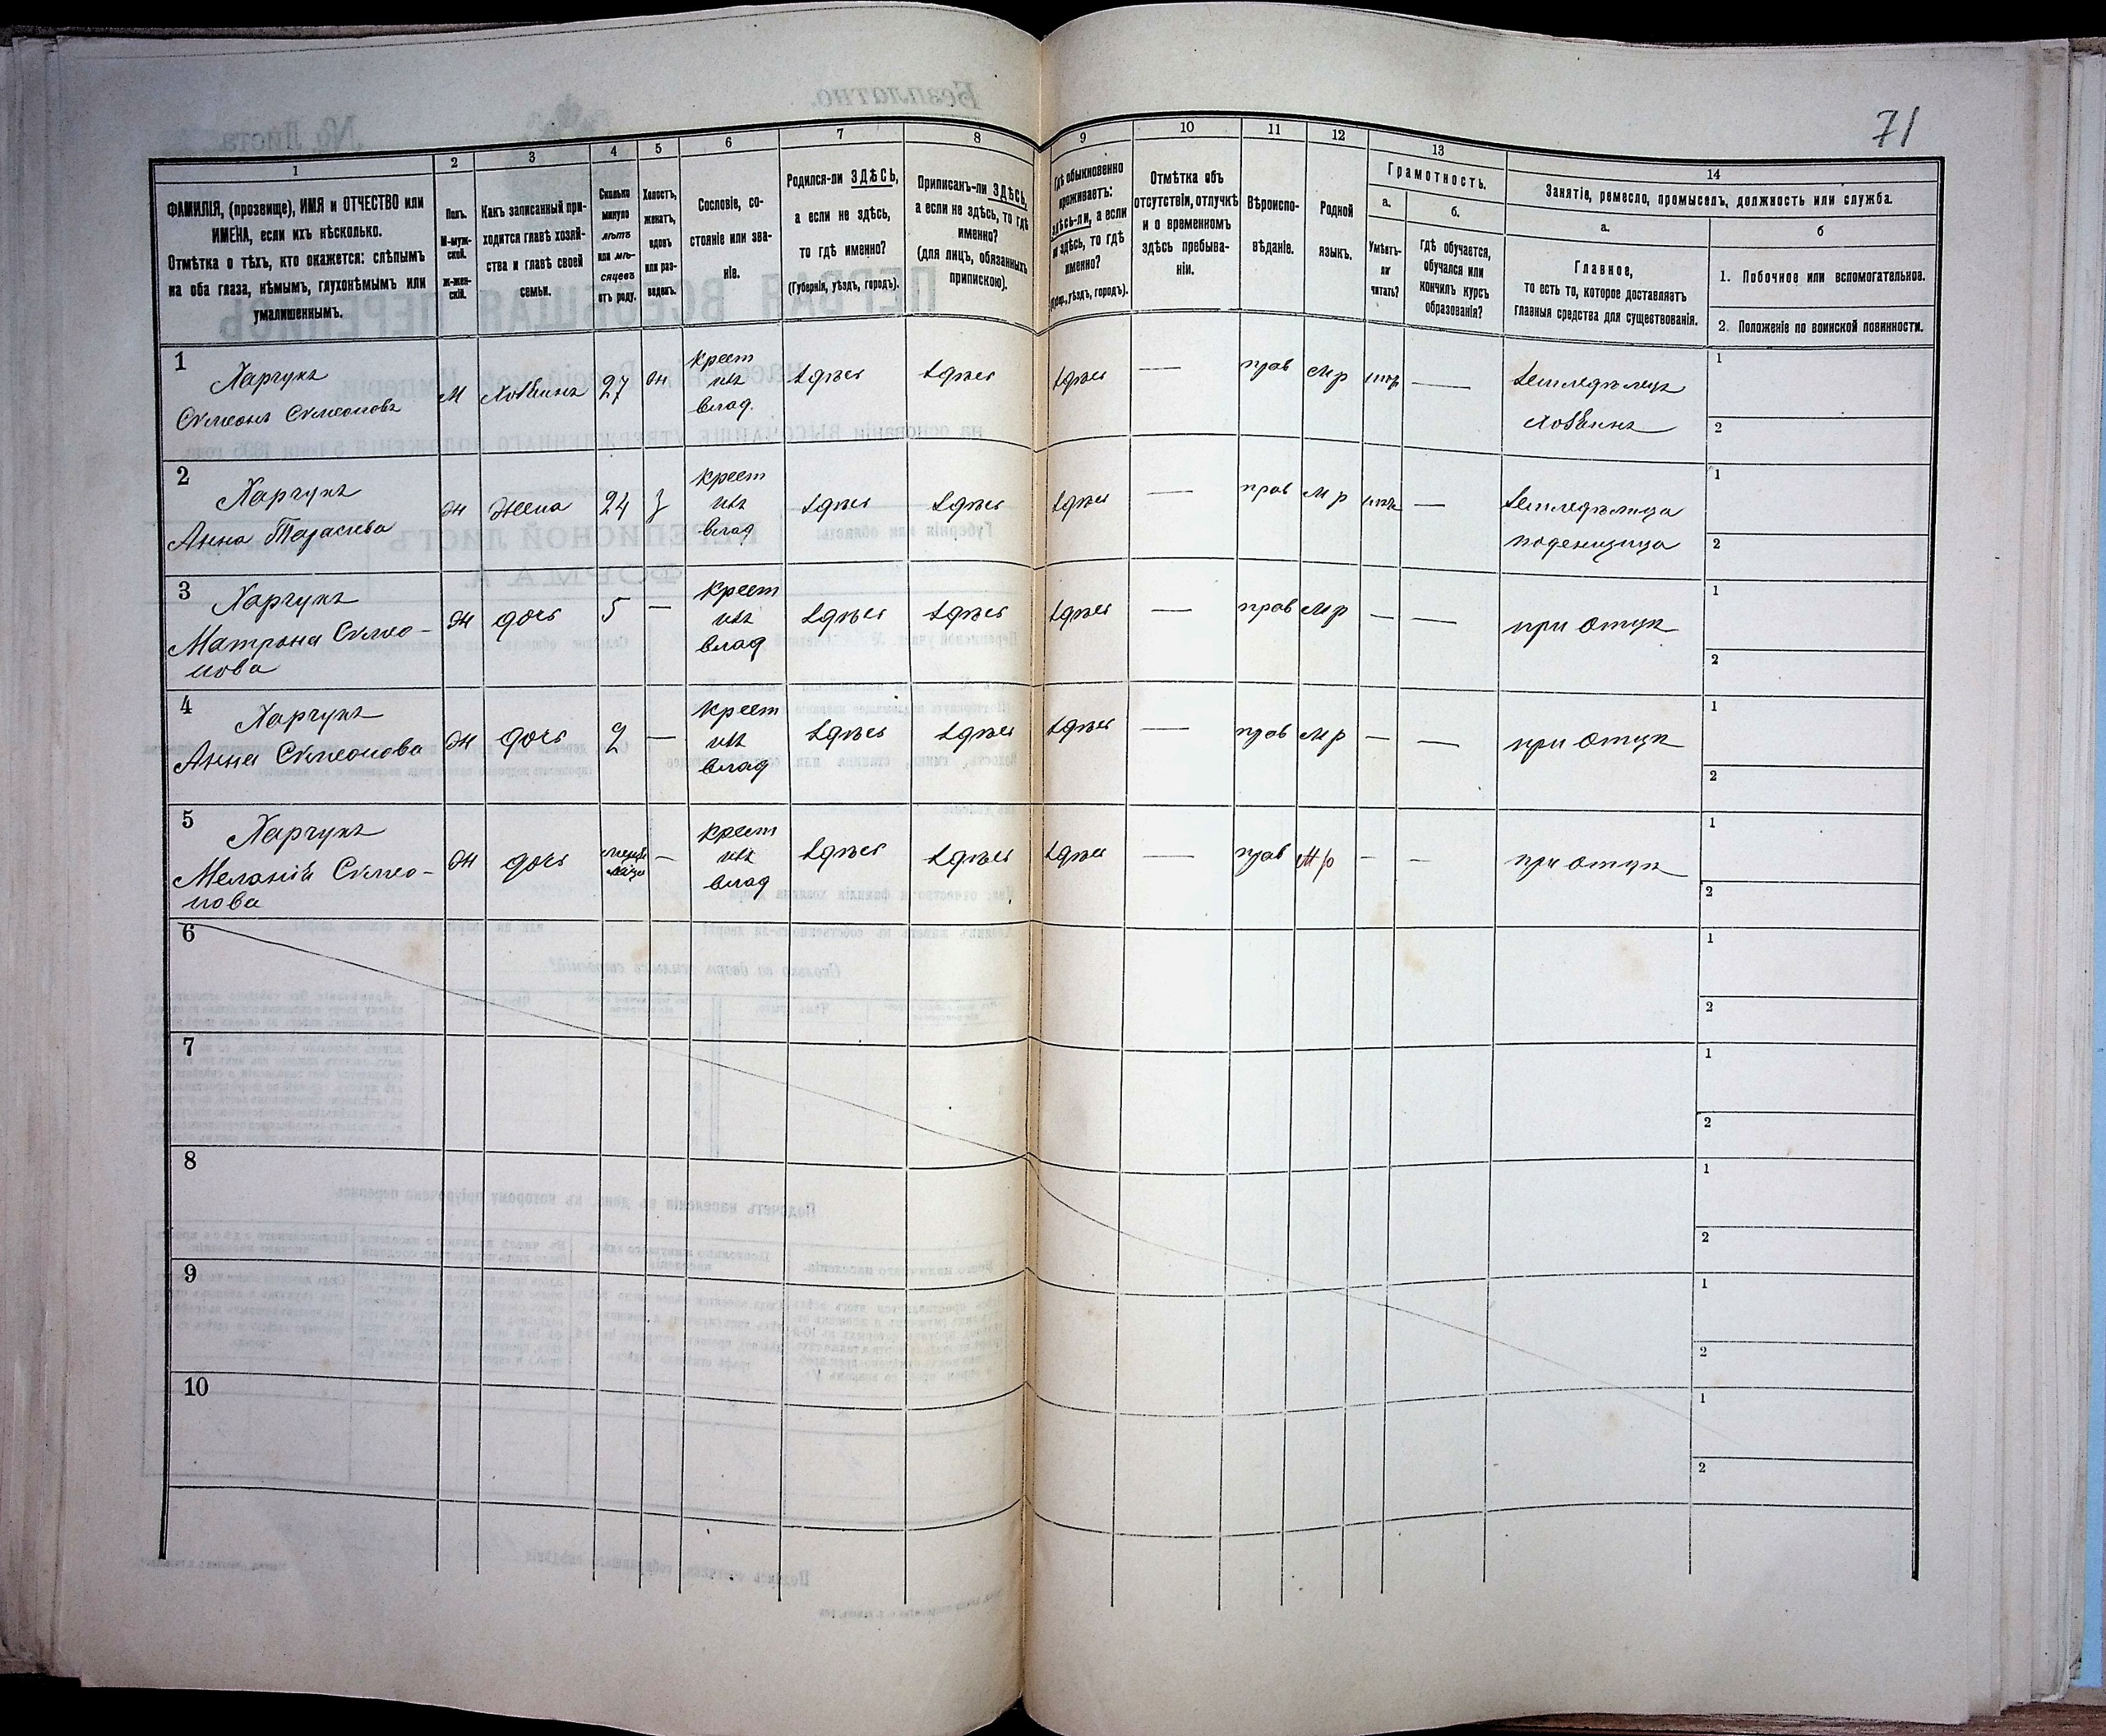 71
1
2
3
4
5
6
7
8
9
10
11
12
13
14
ФАМИЛІЯ, (прозвище), ИМЯ и ОТЧЕСТВО или
ИМЕНА, если ихъ нѣсколько.
Отмѣтка о тѣхъ, кто окажется: слѣпымъ
на оба глаза, нѣмымъ, глухонѣмымъ или
умалишеннымъ.
Полъ.
М-муж-
ской.
Ж-жен-
скій.
Какъ записанный при-
ходится главѣ хозяй-
ства и главѣ своей
семьи.
Сколько
минуло
лѣтъ
или мѣ-
сяцевъ
отъ роду.
Холостъ,
женатъ,
вдовъ
или раз-
веденъ.
Сословіе, со-
стояніе или зва-
ніе.
Родился-ли ЗДѢСЬ,
а если не здѣсь,
то гдѣ именно?
(Губернія, уѣздъ, городъ).
Приписанъ-ли ЗДѢСЬ,
а если не здѣсь, то гдѣ
именно?
(для лицъ, обязанныхъ
припискою).
Гдѣ обыкновенно
проживаетъ:
здѣсь-ли, а если
не здѣсь, то гдѣ
именно?
(Губ., уѣздъ, городъ).
Отмѣтка объ
отсутствіи, отлучкѣ
и о временномъ
здѣсь пребыва-
ніи.
Вѣроиспо-
вѣданіе.
Родной
языкъ.
Грамотность.
а.
Умѣетъ-
ли
читать?
б.
гдѣ обучается,
обучался или
кончилъ курсъ
образованія?
Занятіе, ремесло, промыселъ, должность или служба.
а.
Главное,
то есть то, которое доставляетъ
главныя средства для существованія.
б
1. Побочное или вспомогательное.
2. Положеніе по воинской повинности.
1
Харчукъ
Симеонъ Симеоновъ
М
хозяинъ
27
жн
крест
изъ
влад.
здѣсь
здѣсь
здѣсь
—
прав
мр
—
земледѣлецъ
хозяинъ
1
2
2
Харчукъ
Анна Тарасіева
Ж
жена
24
з
крест
изъ
влад
здѣсь
здѣсь
здѣсь
—
прав
мр
—
земледѣлица
поденщица
1
2
3
Харчукъ
Матрона Симео-
нова
Ж
дочь
5
—
крест
изъ
влад
здѣсь
здѣсь
здѣсь
—
прав
мр
—
—
при отцѣ
1
2
4
Харчукъ
Анна Симеонова
Ж
дочь
2
—
крест
изъ
влад
здѣсь
здѣсь
здѣсь
—
прав
мр
—
—
при отцѣ
1
2
5
Харчукъ
Меланія Симео-
нова
Ж
дочь
—
крест
изъ
влад
здѣсь
здѣсь
здѣсь
—
прав
мр
—
—
при отцѣ
1
2
6
1
2
7
1
2
8
1
2
9
1
2
10
1
2